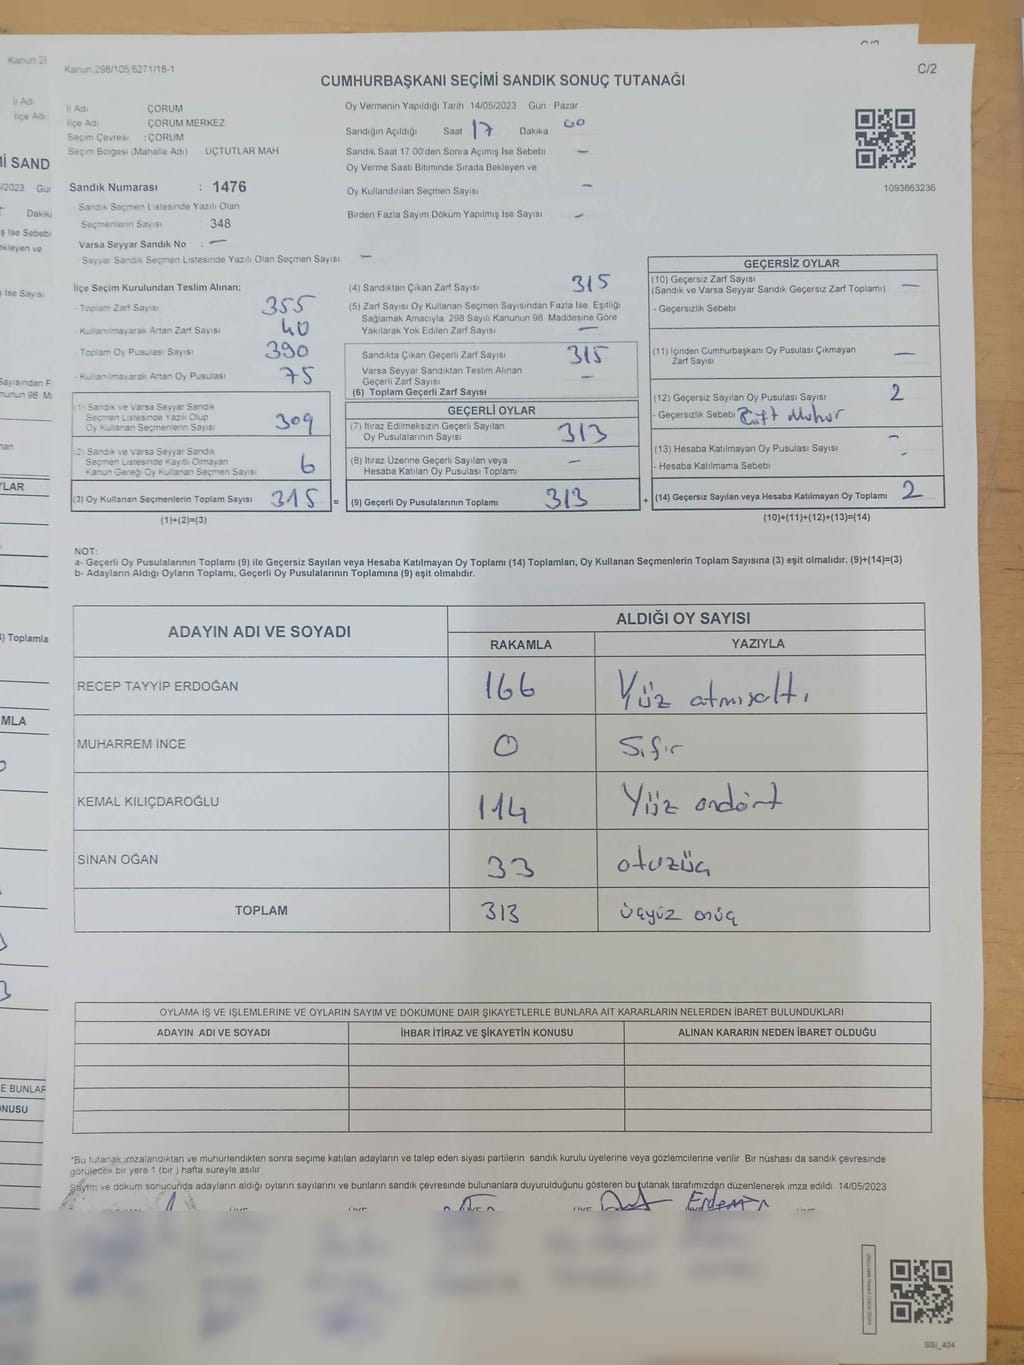 C/2
Kanun:298/105.6271/18-1
CUMHURBAŞKANI SEÇİMİ SANDIK SONUÇ TUTANAĞI
İl Adı ÇORUM
İlçe Adı ÇORUM MERKEZ
Seçim Çevresi : ÇORUM
Seçim Bölgesi (Mahalle Adı) ÜÇTUTLAR MAH
Sandık Numarası : 1476
Sandık Seçmen Listesinde Yazılı Olan
Seçmenlerin Sayısı : 348
Varsa Seyyar Sandık No : —
Seyyar Sandık Seçmen Listesinde Yazılı Olan Seçmen Sayısı —
Oy Vermenin Yapıldığı Tarih 14/05/2023 Gün Pazar
Sandığın Açıldığı Saat 17 Dakika 00
Sandık Saat 17:00'den Sonra Açılmış İse Sebebi —
Oy Verme Saati Bitiminde Sırada Bekleyen ve
Oy Kullandırılan Seçmen Sayısı —
Birden Fazla Sayım Döküm Yapılmış İse Sayısı —
1093863236
İlçe Seçim Kurulundan Teslim Alınan;
- Toplam Zarf Sayısı 355
- Kullanılmayarak Artan Zarf Sayısı 40
- Toplam Oy Pusulası Sayısı 390
- Kullanılmayarak Artan Oy Pusulası 75
(1) Sandık ve Varsa Seyyar Sandık
Seçmen Listesinde Yazılı Olup
Oy Kullanan Seçmenlerin Sayısı 309
(2) Sandık ve Varsa Seyyar Sandık
Seçmen Listesinde Kayıtlı Olmayan
Kanun Gereği Oy Kullanan Seçmen Sayısı 6
(3) Oy Kullanan Seçmenlerin Toplam Sayısı 315 =
(1)+(2)=(3)
(4) Sandıktan Çıkan Zarf Sayısı 315
(5) Zarf Sayısı Oy Kullanan Seçmen Sayısından Fazla İse, Eşitliği
Sağlamak Amacıyla, 298 Sayılı Kanunun 98. Maddesine Göre
Yakılarak Yok Edilen Zarf Sayısı —
Sandıkta Çıkan Geçerli Zarf Sayısı 315
Varsa Seyyar Sandıktan Teslim Alınan
Geçerli Zarf Sayısı —
(6) Toplam Geçerli Zarf Sayısı
GEÇERLİ OYLAR
(7) İtiraz Edilmeksizin Geçerli Sayılan
Oy Pusulalarının Sayısı 313
(8) İtiraz Üzerine Geçerli Sayılan veya
Hesaba Katılan Oy Pusulası Toplamı —
(9) Geçerli Oy Pusulalarının Toplamı 313 +
GEÇERSİZ OYLAR
(10) Geçersiz Zarf Sayısı
(Sandık ve Varsa Seyyar Sandık Geçersiz Zarf Toplamı) —
- Geçersizlik Sebebi
(11) İçinden Cumhurbaşkanı Oy Pusulası Çıkmayan
Zarf Sayısı —
(12) Geçersiz Sayılan Oy Pusulası Sayısı 2
- Geçersizlik Sebebi Çift Mühür
(13) Hesaba Katılmayan Oy Pusulası Sayısı —
- Hesaba Katılmama Sebebi -
(14) Geçersiz Sayılan veya Hesaba Katılmayan Oy Toplamı 2
(10)+(11)+(12)+(13)=(14)
NOT:
a- Geçerli Oy Pusulalarının Toplamı (9) ile Geçersiz Sayılan veya Hesaba Katılmayan Oy Toplamı (14) Toplamları, Oy Kullanan Seçmenlerin Toplam Sayısına (3) eşit olmalıdır. (9)+(14)=(3)
b- Adayların Aldığı Oyların Toplamı, Geçerli Oy Pusulalarının Toplamına (9) eşit olmalıdır.
ADAYIN ADI VE SOYADI ALDIĞI OY SAYISI
RAKAMLA YAZIYLA
RECEP TAYYİP ERDOĞAN 166 Yüz atmışaltı
MUHARREM İNCE 0 Sıfır
KEMAL KILIÇDAROĞLU 114 Yüz ondört
SİNAN OĞAN 33 otuzüç
TOPLAM 313 üçyüz onüç
OYLAMA İŞ VE İŞLEMLERİNE VE OYLARIN SAYIM VE DÖKÜMÜNE DAİR ŞİKAYETLERLE BUNLARA AİT KARARLARIN NELERDEN İBARET BULUNDUKLARI
ADAYIN ADI VE SOYADI İHBAR İTİRAZ VE ŞİKAYETİN KONUSU ALINAN KARARIN NEDEN İBARET OLDUĞU
*Bu tutanak imzalandıktan ve mühürlendikten sonra seçime katılan adayların ve talep eden siyasi partilerin sandık kurulu üyelerine veya gözlemcilerine verilir. Bir nüshası da sandık çevresinde
görülecek bir yere 1 (bir ) hafta süreyle asılır.
Sayım ve döküm sonucunda adayların aldığı oyların sayılarını ve bunların sandık çevresinde bulunanlara duyurulduğunu gösteren bu tutanak tarafımızdan düzenlenerek imza edildi. 14/05/2023
Erdem
SSİ_404